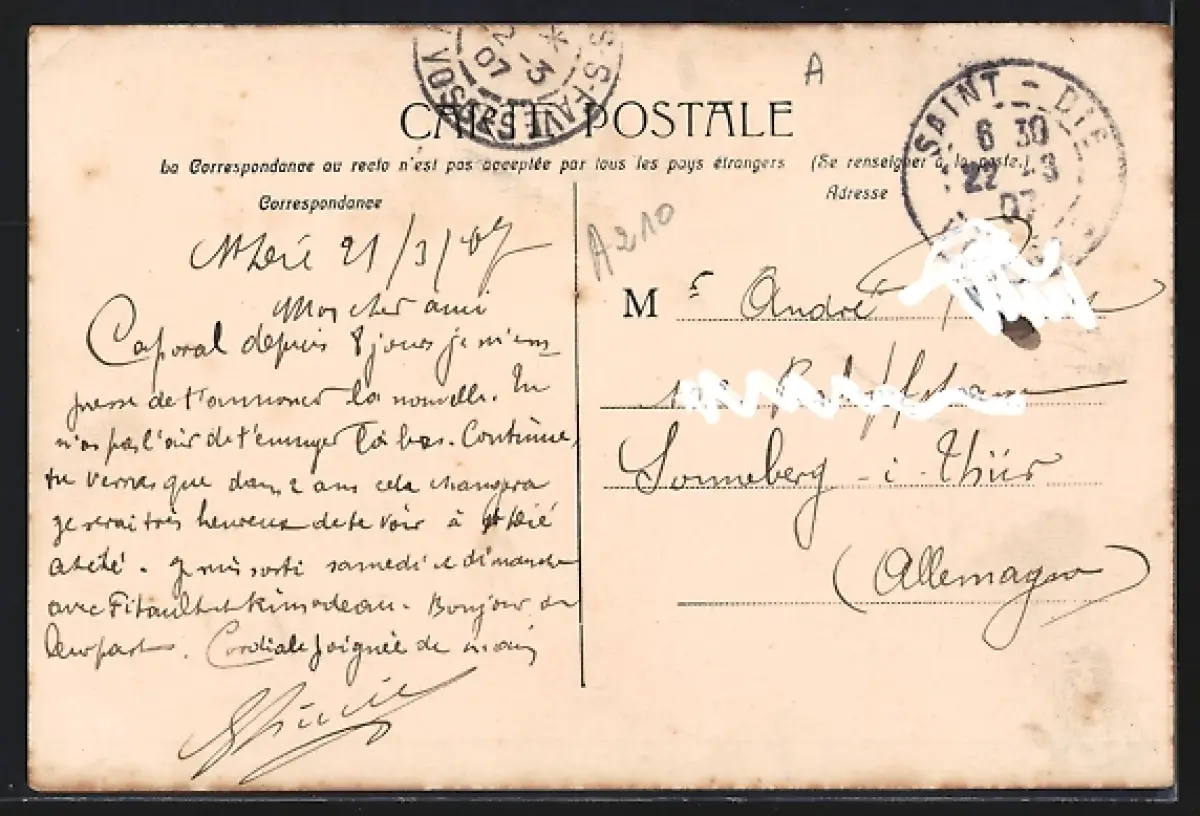 CARTE POSTALE
La Correspondance au recto n'est pas acceptée par tous les pays étrangers (Se renseigner à la poste.)
Correspondance
Adresse
A
A210
SAINT-DIÉ
6 30
22 -3
07
VOSGES
*
-3
07
St Dié 21/3/07
Mon cher ami
Caporal depuis 8 jours je m'em
presse de t'annoncer la nouvelle. Tu
n'as pas l'air de t'ennuyer là bas. Continue,
tu verras que dans 2 ans cela changera
Je serai très heureux de te voir à St Dié
cet été. Je suis sorti samedi et dimanche
avec Fitault et Rimodeau. Bonjour de
leur part. Cordiale poignée de main
Mr André
Sonneberg - i - Thür
(Allemagne)